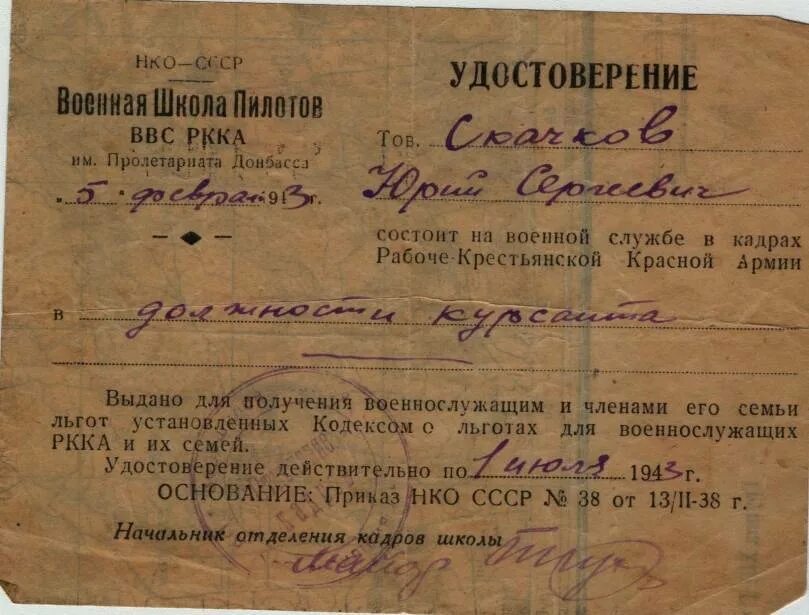 НКО—СССР
Военная Школа Пилотов
ВВС РККА
им. Пролетариата Донбасса
„ 5 " февраля 1943 г.
УДОСТОВЕРЕНИЕ
Тов. Скачков
Юрий Сергеевич
состоит на военной службе в кадрах
Рабоче-Крестьянской Красной Армии
в должности курсанта
Выдано для получения военнослужащим и членами его семьи
льгот установленных Кодексом о льготах для военнослужащих
РККА и их семей.
Удостоверение действительно по 1 июля 1943 г.
ОСНОВАНИЕ: Приказ НКО СССР № 38 от 13/II-38 г.
Начальник отделения кадров школы
майор